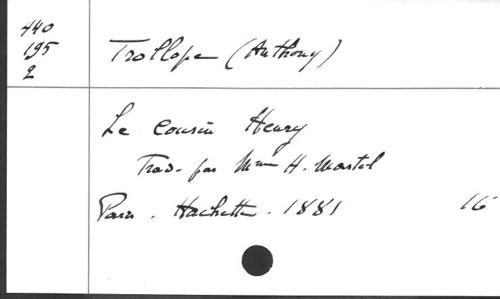 440
195
2
Trollope (Anthony)
Le cousin Henry
Trad. par Mme H. Martel
Paris. Hachette. 1881 16